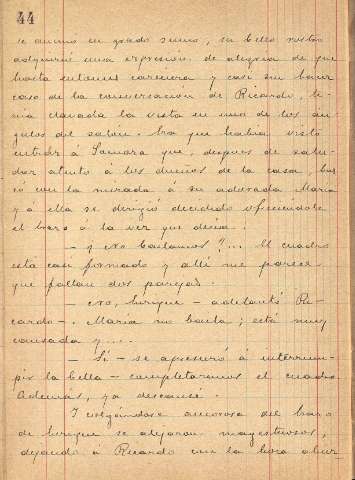 44
se animó en grado sumo, su bello rostro
adquirió una expresión de alegria de que
hasta entonces careciera y casi sin hacer
caso de la conversación de Ricardo, te-
nia clavada la vista en uno de los an-
gulos del salón. Era que habia visto
entrar á Zamora que, despues de salu-
dar atento á los dueños de la casa, bus
có con la mirada á su adorada Maria
y á ella se dirigió decidido ofreciendole
el brazo á la vez que decia:
— Y no bailamos?... El cuadro
está casi formado y alli me parece
que faltan dos parejas.
— No, Enrique — adelantó Ri-
cardo —. Maria no baila; está muy
cansada y...
— Si — se apresuró á interrum-
pir la bella — completaremos el cuadro
Ademas, ya descansé.
Y colgándose amorosa del brazo
de Enrique se alejaron magestuosos,
dejando á Ricardo con la boca abier